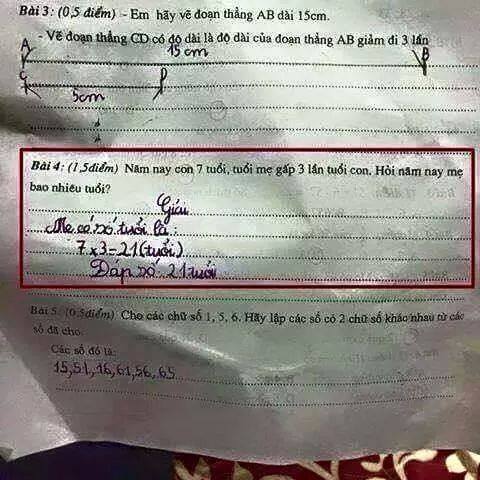 Bài 3: (0,5 điểm) - Em hãy vẽ đoạn thẳng AB dài 15cm.
- Vẽ đoạn thẳng CD có độ dài là độ dài của đoạn thẳng AB giảm đi 3 lần
A 15 cm B
C D
5cm
Bài 4: (1,5điểm) Năm nay con 7 tuổi, tuổi mẹ gấp 3 lần tuổi con. Hỏi năm nay mẹ
bao nhiêu tuổi?
Giải
Mẹ có số tuổi là:
7 x 3 = 21 (tuổi)
Đáp số 21 tuổi
Bài 5: (0,5điểm) Cho các chữ số 1, 5, 6. Hãy lập các số có 2 chữ số khác nhau từ các
số đã cho.
Các số đó là:
15, 51, 16, 61, 56, 65